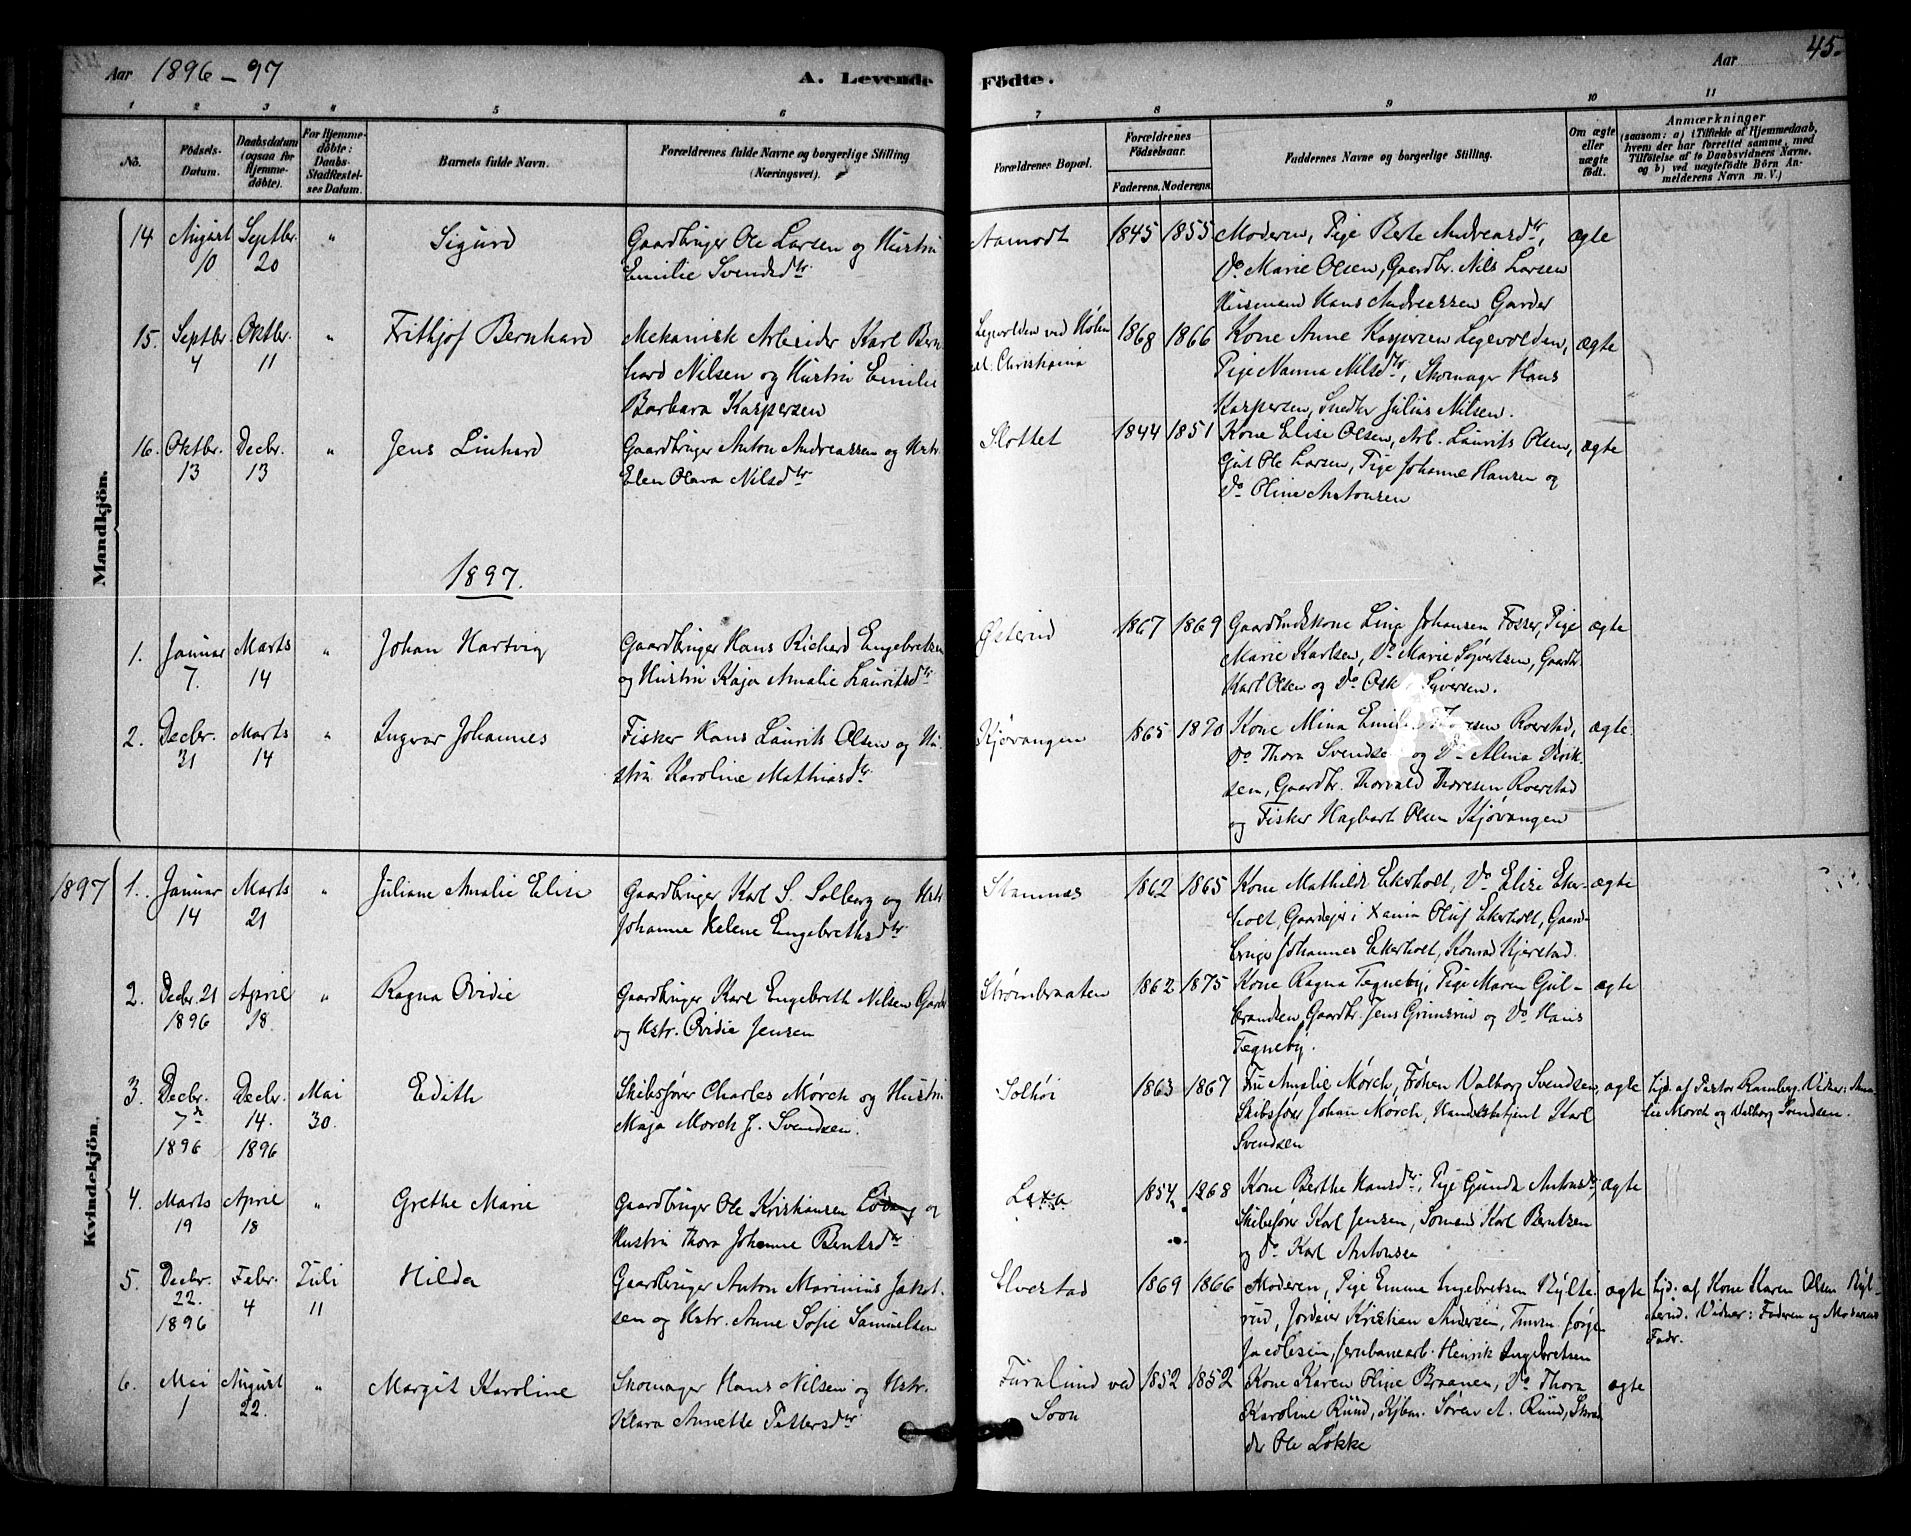 Aar 1896-97
A. Levende
Födte.
Aar
45.
1 2 3 4 5 6 7 8 9 10 11
No.
Födsels-
Datum.
Daabsdatum
(ogsaa for
Hjemme-
döbte).
For Hjemme-
döbte:
Daabs-
Stadfæstel-
ses Datum.
Barnets fulde Navn.
Forældrenes fulde Navne og borgerlige Stilling
(Næringsvei).
Forældrenes Bopæl.
Forældrenes
Födselsaar.
Faderens. Moderens.
Faddernes Navne og borgerlige Stilling.
Om ægte
eller
uægte
födt.
Anmærkninger
(saasom: a) i Tilfælde af Hjemmedaab,
hvem der har forrettet samme, med
Tilföielse af to Daabsvidners Navne,
og b) ved uægtefödte Börn An-
melderens Navn m. V.)
Mandkjön.
14 August 10 Septbr. 20 " Sigurd
Gaardbruger Ole Larsen og Hustru
Emilie Svendsdtr.
Aamodt 1845 1855
Moderen, Pige Berte Andreasdtr,
Do Marie Olsen, Gaardbr. Nils Larsen
Husmand Hans Andreassen Garder
ægte
15. Septbr 4 Oktbr. 11 " Frithjof Bernhard
Mekanisk Arbeider Karl Bern
hard Nilsen og Hustru Emilie
Barbara Kaspersen
Legevolden ved Hølen
Christiania
1868 1866
Kone Anne Kaspersen Legevolden,
Pige Nanna Nilsdtr, Skomager Hans
Kaspersen, Snedker Julius Nilsen.
ægte
16. Oktbr. 13 Decbr. 13 " Jens Linhard
Gaardbruger Anton Andreassen og Hstr.
Elen Olava Nilsdtr
Slottet 1844 1851
Kone Elise Olsen, Arb. Laurits Olsen,
Gut Ole Larsen, Pige Johanne Hansen og
Do Oline Antonsen
ægte
1897.
1. Januar 7. Marts 14 " Johan Hartvig
Gaardbruger Hans Richard Engebretsen
og Hustru Kaja Amalie Lauritsdtr
Østerud 1867 1869
Gaardmdskone Lina Johansen Fosser, Pige
Marie Karlsen, Do Marie Syvertsen, Gaardbr.
Karl Olsen og Do Syversen.
ægte
2. Decbr. 31 Marts 14 " Ingvar Johannes
Fisker Hans Laurits Olsen og Hu-
stru Karoline Mathiasdtr.
Kjøvangen 1865 1870
Kone Mina Thoresen Roerstad,
Do Thora Svendsen og Do Alma Dirik-
sen, Gaardbr. Thorvald Thoresen Roerstad
og Fisker Hagbart Olsen Kjøvangen
ægte.
Kvindekjön.
1897 1. Januar 14 Marts 21 " Juliane Amalie Elise
Gaardbruger Karl S. Solberg og Hstr
Johanne Helene Engebrethsdtr
Stamnæs 1862 1865
Kone Mathilde Ekerholt, Do Elise Eker-
holt, Gaardejer i Xania Oluf Ekerholt, Gaard-
bruger Johannes Ekerholt, Konrad Kjerstad.
ægte
2. Decbr. 21 1896 April 18. " Ragna Ovidie
Gaardbruger Karl Engebreth Nilsen Garder
og Hstr. Ovidie Jensen
Strømbraaten 1862 1875
Kone Ragna Tegneby, Pige Maren Gul-
brandsen, Gaardbr. Jens Grimsrud og Do Hans
Tegneby.
ægte
3. Decbr. 7de 1896 Decbr. 14. 1896 Mai 30. Edith
Skibsfører Charles Mørch og Hustru
Maja Mørch f. Svendsen.
Solhøi 1863 1867
Fru Amalie Mørch, Frøken Valborg Svendsen,
Skibsfører Johan Mørch, Handelsbetjent Karl
Svendsen
ægte
hjd. af Pastor Ramberg. Vidner: Ama-
lie Mørch og Valborg Svendsen.
4. Marts 19 April 18 " Grethe Marie
Gaardbruger Ole Kristiansen og
Hustru Thora Johanne Berntsdtr
1854 1868
Kone Berthe Hansdtr, Pige Gunda Antonsdtr,
Skibsfører Karl Jensen, Sømand Karl Berntsen
og Do Karl Antonsen
ægte
5. Decbr. 22. 1896 Febr. 4 Juli 11 Hilda
Gaardbruger Anton Marinius Jakob-
sen og Hstr. Anne Sofie Samuelsen
Elvestad 1869 1866
Moderen, Pige Emma Ingebretsen Rylte-
rud, Jordeier Kristian Andersen, Tømm. Jørgen
Jacobsen, Jernbanearb. Henrik Ingebretsen
ægte
hjd. af Kone Karen Olsen Ryl-
terud. Vidner: Faderen og Moderens
Fader.
6. Mai 1 August 22. " Margit Karoline
Skomager Hans Nilsen og Hstr.
Klara Annette Pettersdtr
Furulund ved
Soon
1852 1852
Kone Karen Oline Braanen, Do Thora
Karoline Ruud, Kjbm. Søren A. Ruud, Skræd
der Ole Løkke
ægte